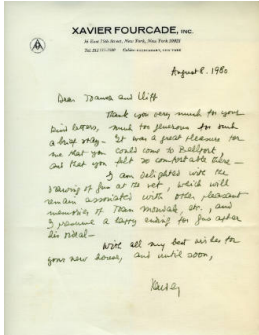 XAVIER FOURCADE, INC.
36 East 75th Street, New York, New York 10021
August 8, 1980
Dear Joanna and Cliff
Thank you very much for your
kind letters, much too generous for such
a brief stay - It was a great pleasure for
me that you could come to Bellport
and that you felt so comfortable there -
I am delighted with the
drawing of Gus at the vet, which will
remain associated with other pleasant
memories of Joan Mondale, etc. and
I presume a happy ending for Gus after
his ordeal -
With all my best wishes for
your new house, and until soon,